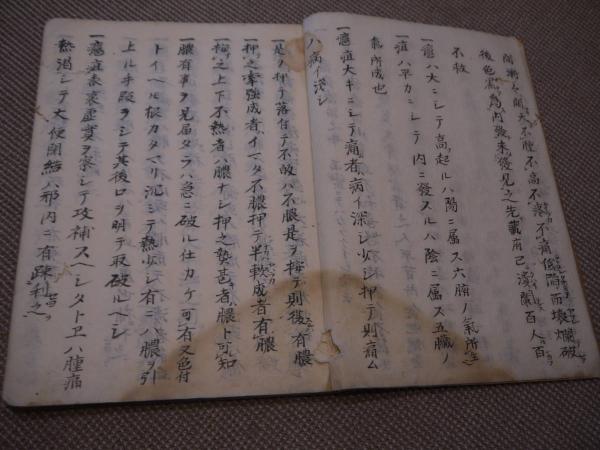 間漸々開大不腫不高不焮不痛低陥而壊爛破
後色濃為内発未発見之先蔵府已潰爛百人百
不救
一癰ハ大ニシテ高ク起ルハ陽ニ属ス六腑ノ気所生
一疽ハ平カニシテ内ニ發スルハ陰ニ属ス五臓ノ
氣所成也
一癰疽大キニシテ痛者病イ深シ少シ押テ則痛ム
ハ病イ浅シ
是ヲ押テ落存テ不故ハ不膿是ヲ按テ則後有膿
一押之牢強成者イマタ不膿押テ半軟成者有膿
一按之上下不熱者ハ膿ナシ押之熱甚者膿ト可知
一膿有事ヲ見届タラハ急ニ破ル仕カケ可有又色付
トイヘル根カタマリ沉シテ熱少シ有ニハ膿ヲ引
上ル手段ヲシテ其後口ヲ明テ取破ルヘシ
一癰疽表裏虚実ヲ察シテ攻補スヘシタトヱハ腫痛
熱渇シテ大便閉結ハ邪内ニ有疎利之